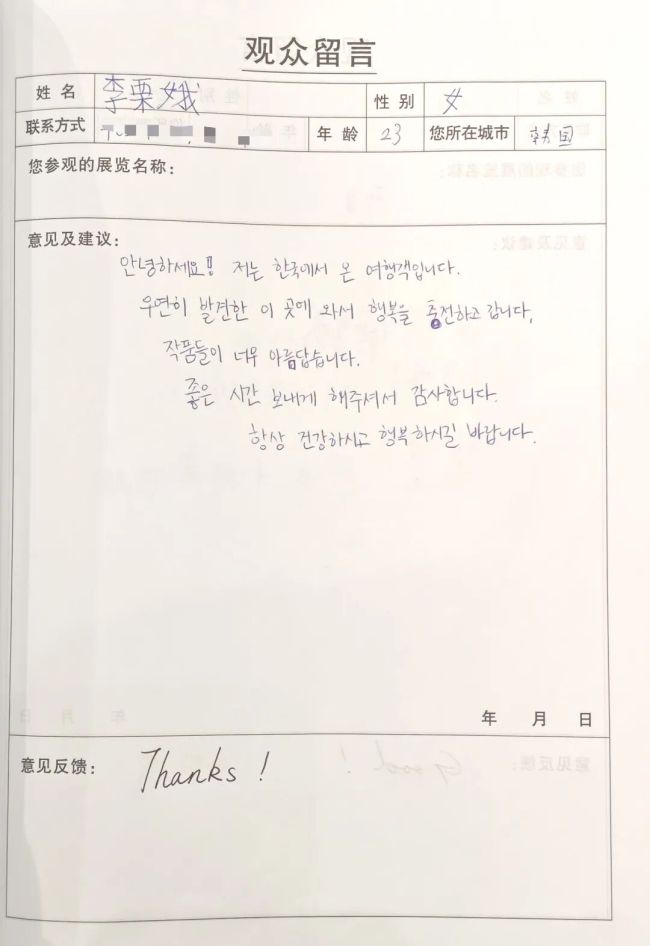 观众留言
姓 名 李栗娥 性 别 女
联系方式 年 龄 23 您所在城市 韩国
您参观的展览名称：
意见及建议：
안녕하세요! 저는 한국에서 온 여행객입니다.
우연히 발견한 이 곳에 와서 행복을 충전하고 갑니다.
작품들이 너무 아름답습니다.
좋은 시간 보내게 해주셔서 감사합니다.
항상 건강하시고 행복하시길 바랍니다.
年 月 日
意见反馈： Thanks !